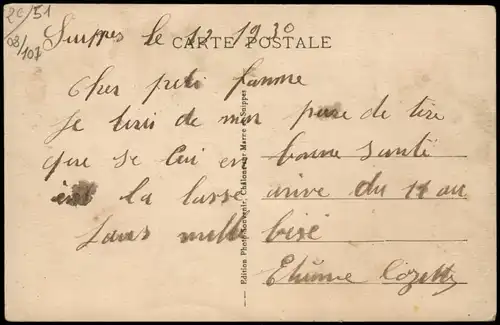 20/51
08/107
Suippes le 12 1930
CARTE POSTALE
Cher peti famme
Je de mon pere de tire
que se lui en bonne santé
la lasse arive du 14 au
Jours mille bisé
Edition Photo-Souvenir, Châlons-sur-Marne et Suippes